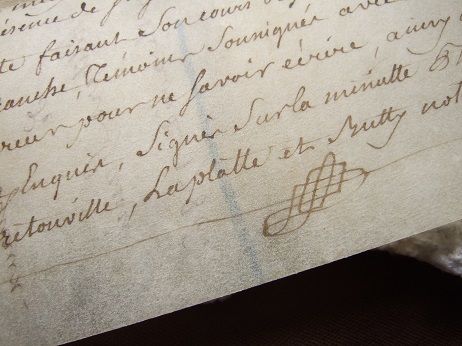 te faisant son cours
anche, témoins sousignés avec
pour ne savoir écrire, ainsy
Enquis, signés sur la minutte
retouville, Laplatte et Rutty not